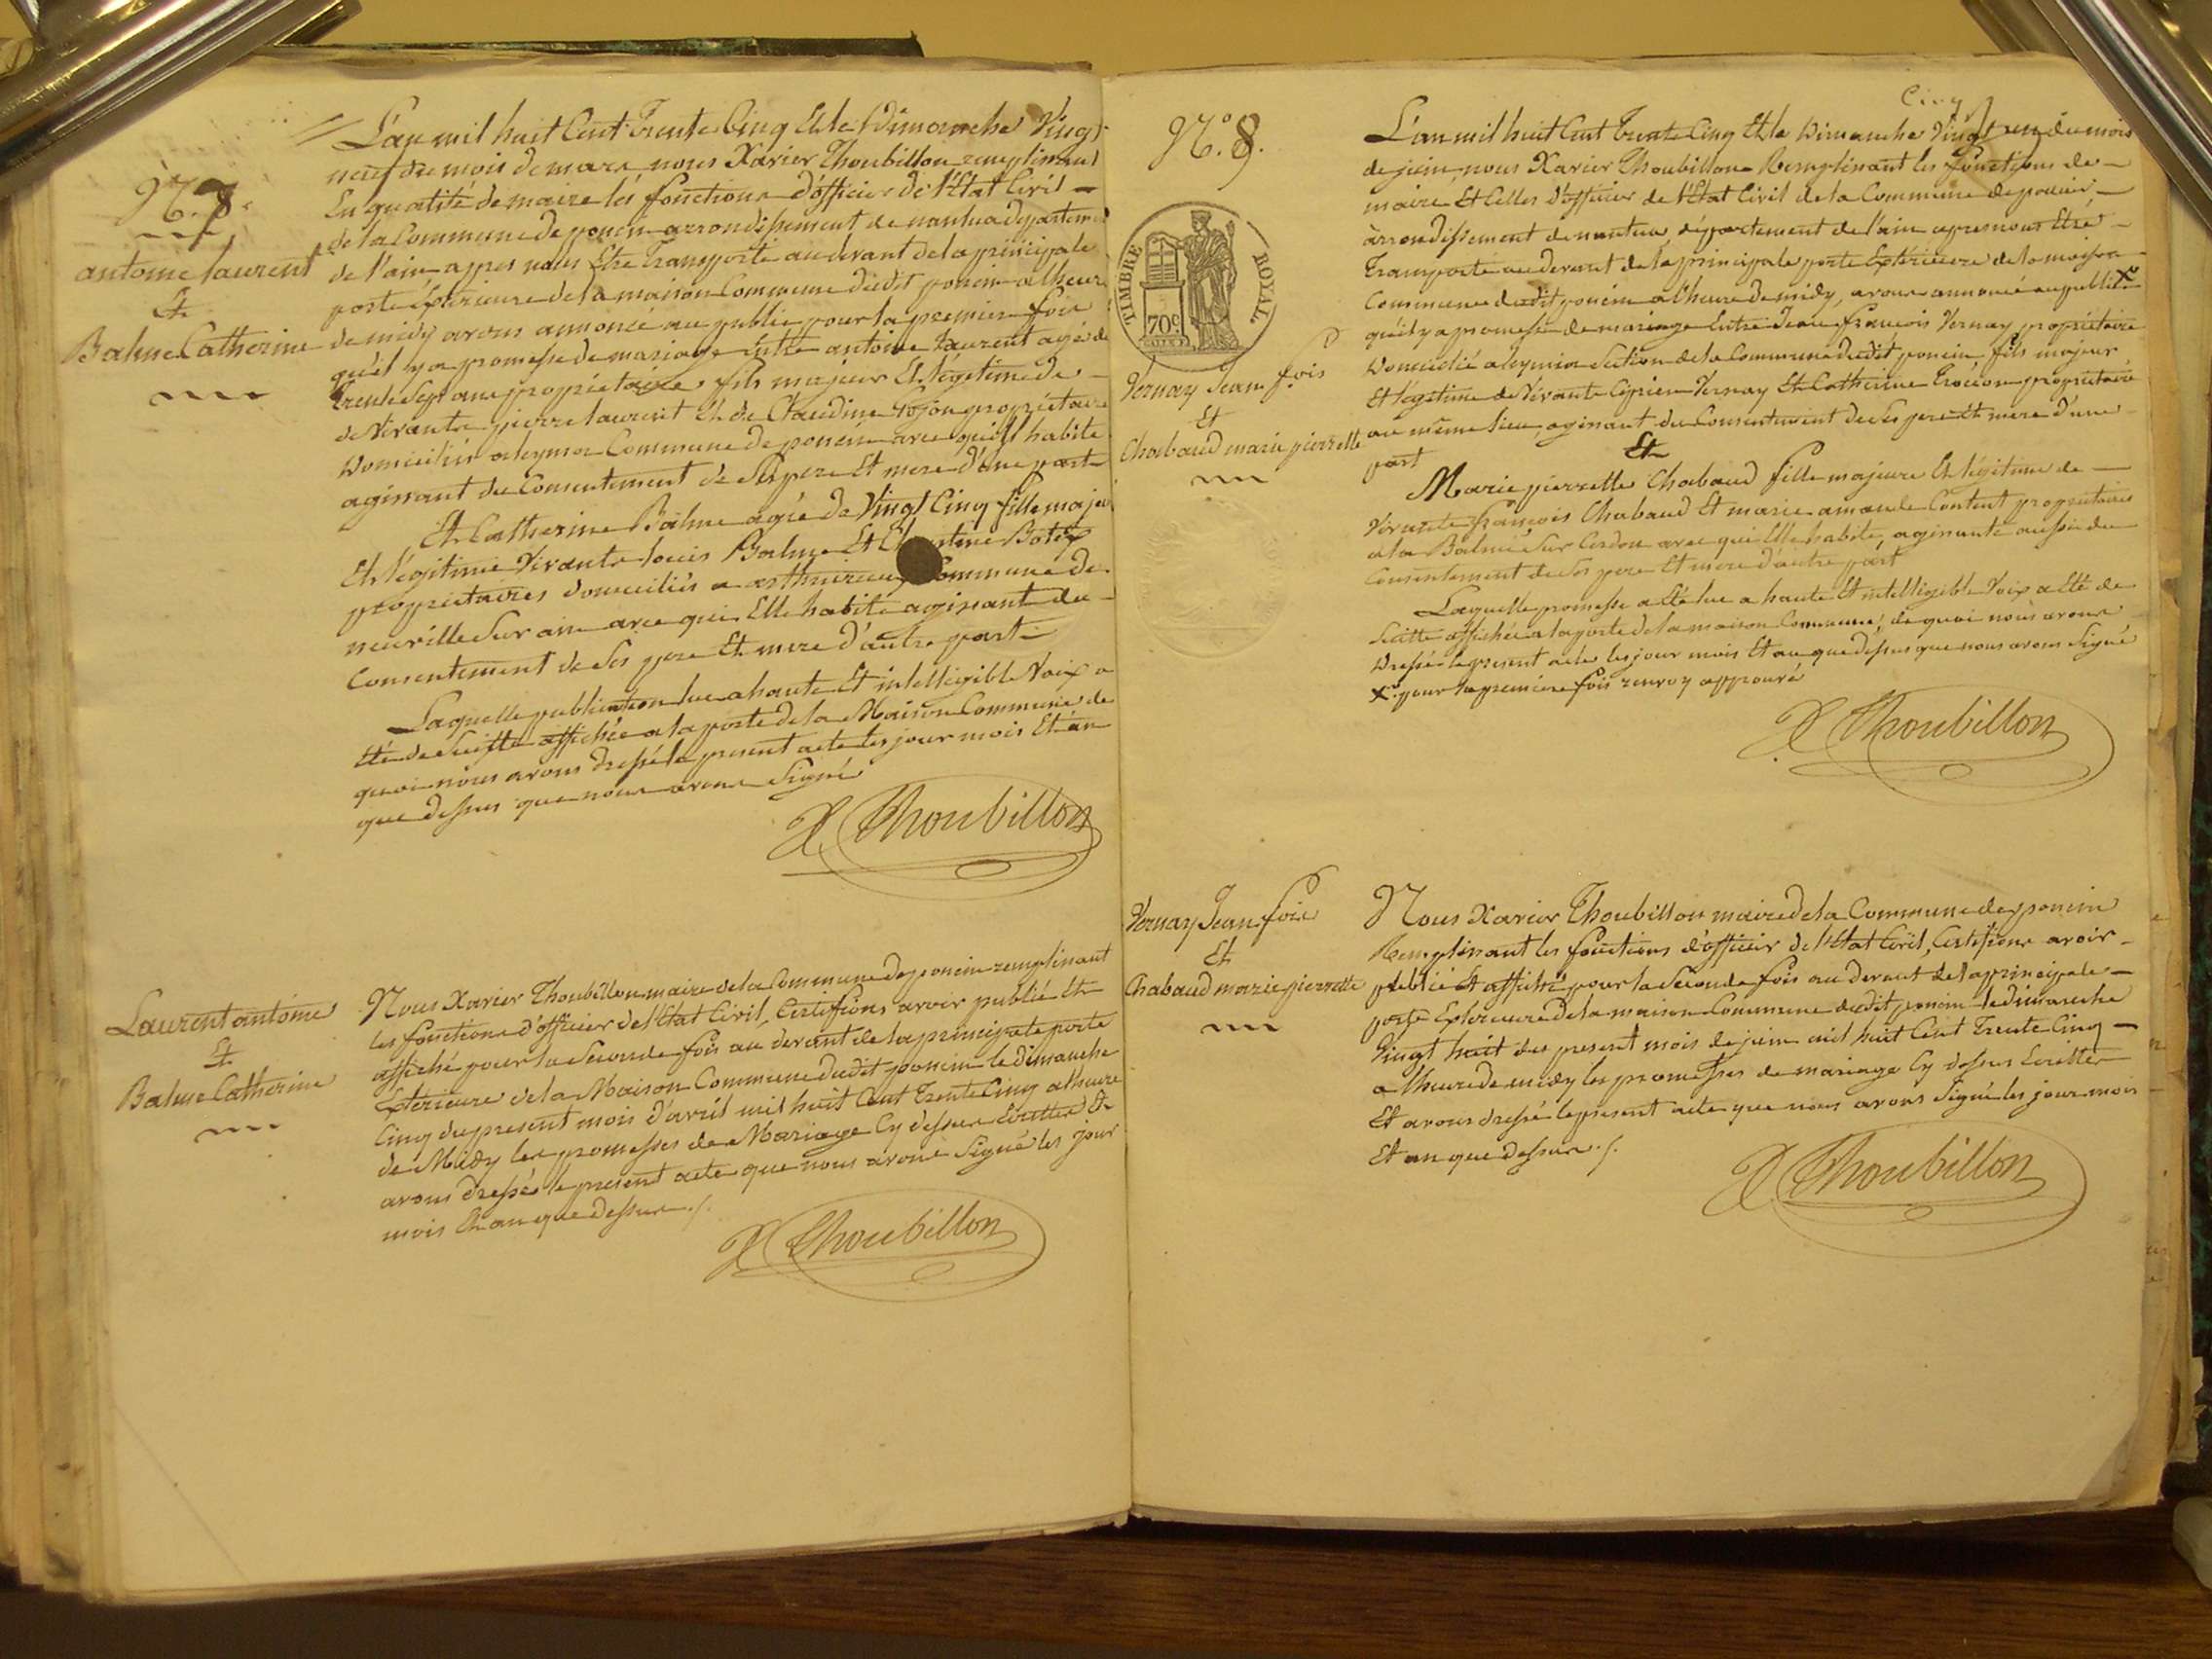 N.º 7.
antoine laurent
Et
Balme Catherine
L'an mil huit Cent Trente Cinq Et le Dimanche Vingt
neuf du mois de mars nous Xavier Thoubillon remplissant
En qualité de maire les fonctions d'officier de l'Etat Civil
de la Commune de poncin arrondissement de nantua departement
de l'ain apres nous Etre Transporté au devant de la principale
porte Exterieure de la maison Commune dudit poncin a l'heure
de midy avons annoncé au public pour la premier fois
qu'il y a promesse de mariage entre antoine Laurent agé de
trente Sept ans propriétaire fils majeur Et légitime de
de Vivants pierre laurent Et de Claudine Gojon propriétaires
Domiciliés a leymia Commune de poncin avec qui il habite
agissant du Consentement de Ses pere Et mere d'une part
Et Catherine Balme agée de Vingt Cinq fille majeure
Et légitime Vivants louis Balme Et Botex
propriétaires domiciliés a Commune de
neuville Sur ain avec qui Elle habite agissant du
Consentement de Ses pere Et mere d'autre part
Laquelle publication lue a haute Et intelligible Voix a
Eté de Suitte affichée a la porte de la Maison Commune de
quoi nous avons dressé le present acte les jour mois Et an
que dessus que nous avons Signé
X Thoubillon
Laurent antoine
Et
Balme Catherine
Nous Xavier Thoubillon maire de la Commune de poncin remplissant
les fonctions d'officier de l'Etat Civil, Certifions avoir publié Et
affiché pour la Seconde fois au devant de la principale porte
Exterieure de la Maison Commune dudit poncin le dimanche
Cinq du present mois d'avril mil huit Cent Trente Cinq a l'heure
de Midy les promesses de Mariage Cy dessus Ecrittes Et
avons dressé le present acte que nous avons Signé les jour
mois Et an que dessus ./.
X Thoubillon
N.º 8.
TIMBRE ROYAL
70 c
Vernay Jean f.ois
Et
Chabaud marie pierrette
L'an mil huit Cent Trente Cinq Et le Dimanche Vingt un du mois
de juin nous Xavier Thoubillon Remplissant les fonctions de
maire Et Celles d'officier de l'Etat Civil de la Commune de poncin
arrondissement de nantua, département de l'ain apres nous Etre
Transporté au devant de la principale porte Extérieure de la maison
Commune dudit poncin a l'heure de midy, avons annoncé au public X
qu'il y a promesse de mariage Entre Jean françois Vernay propriétaire
Domicilié a leymia Section de la Commune dudit poncin, fils majeur
Et légitime de Vivants Ciprien Vernay Et Catherine propriétaires
au même lieu, agissant du Consentement de Ses pere Et mere d'une
part
Et
Marie pierrette Chabaud fille majeure Et légitime de
Vivants françois Chabaud Et marie amande Content propriétaires
a la Balme Sur Cerdon avec qui Elle habite, agissante aussi du
Consentement de Ses pere Et mere d'autre part
Laquelle promesse a Eté lue a haute Et intelligible Voix a Eté de
Suitte affichée a la porte de la maison Commune, de quoi nous avons
Dressé le present acte les jour mois Et an que dessus que nous avons Signé
X pour la premiere fois renvoy approuvé
X Thoubillon
Vernay Jean fois
Et
Chabaud marie pierrette
Nous Xavier Thoubillon maire de la Commune de poncin
Remplissant les fonctions d'officier de l'Etat Civil, Certifions avoir
publié Et affiché pour la Seconde fois au devant de la principale
porte Exterieure de la maison Commune dudit poncin le dimanche
Vingt huit du present mois de juin mil huit Cent Trente Cinq
a l'heure de midy les promesses de mariage Cy dessus Ecrittes
Et avons dressé le present acte que nous avons Signé les jour mois
Et an que dessus ./.
X Thoubillon